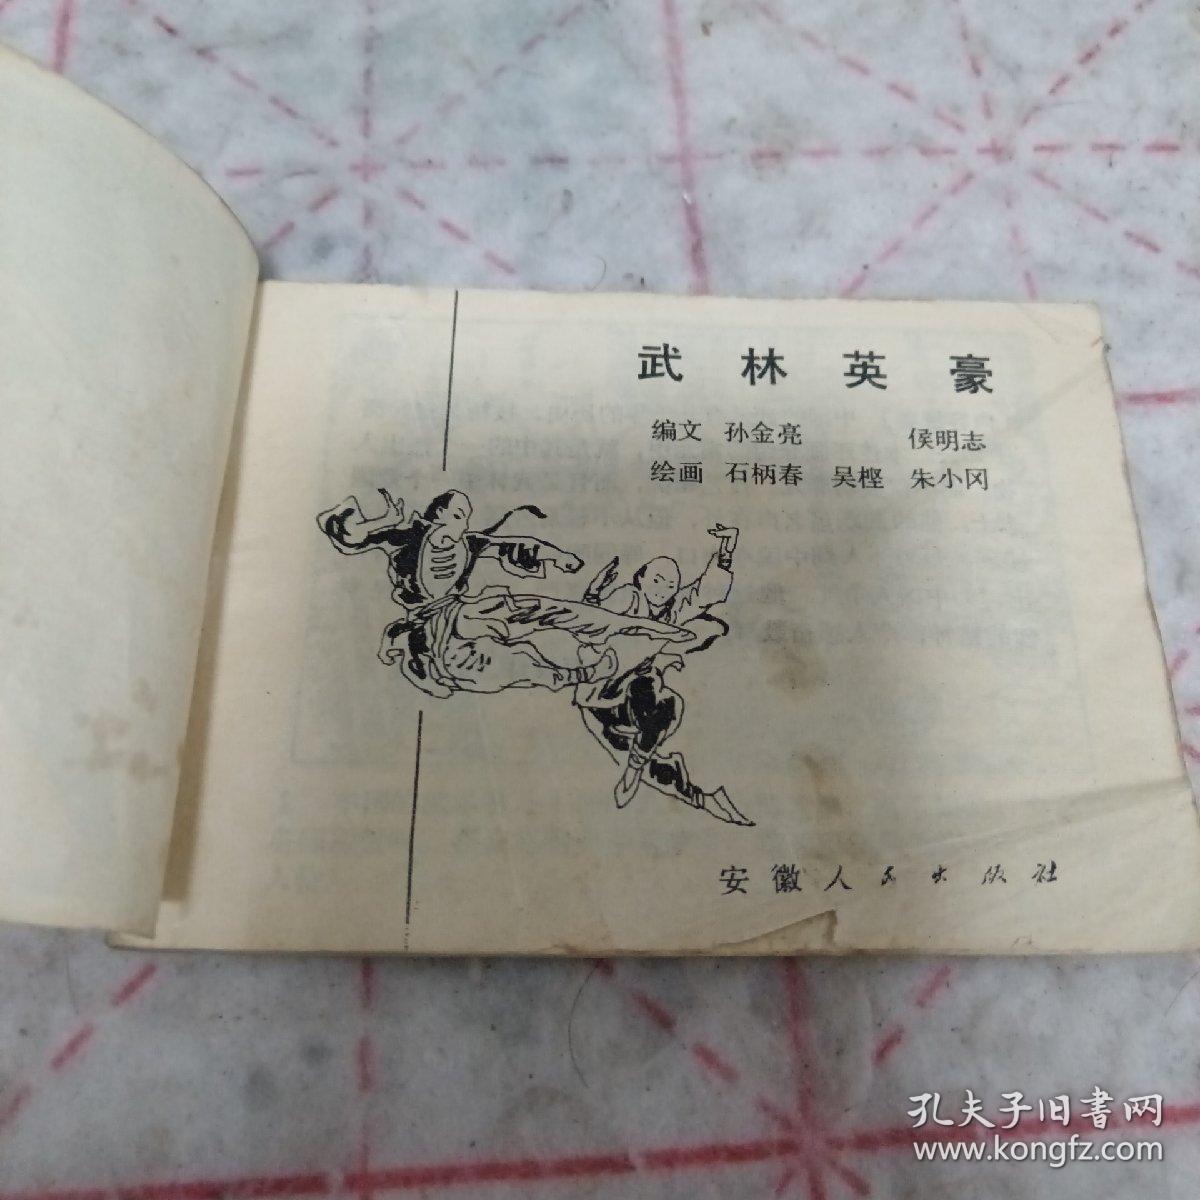 武林英豪
编文 孙金亮 侯明志
绘画 石柄春 吴桎 朱小冈
安徽人民出版社
孔夫子旧書网
www.kongfz.com